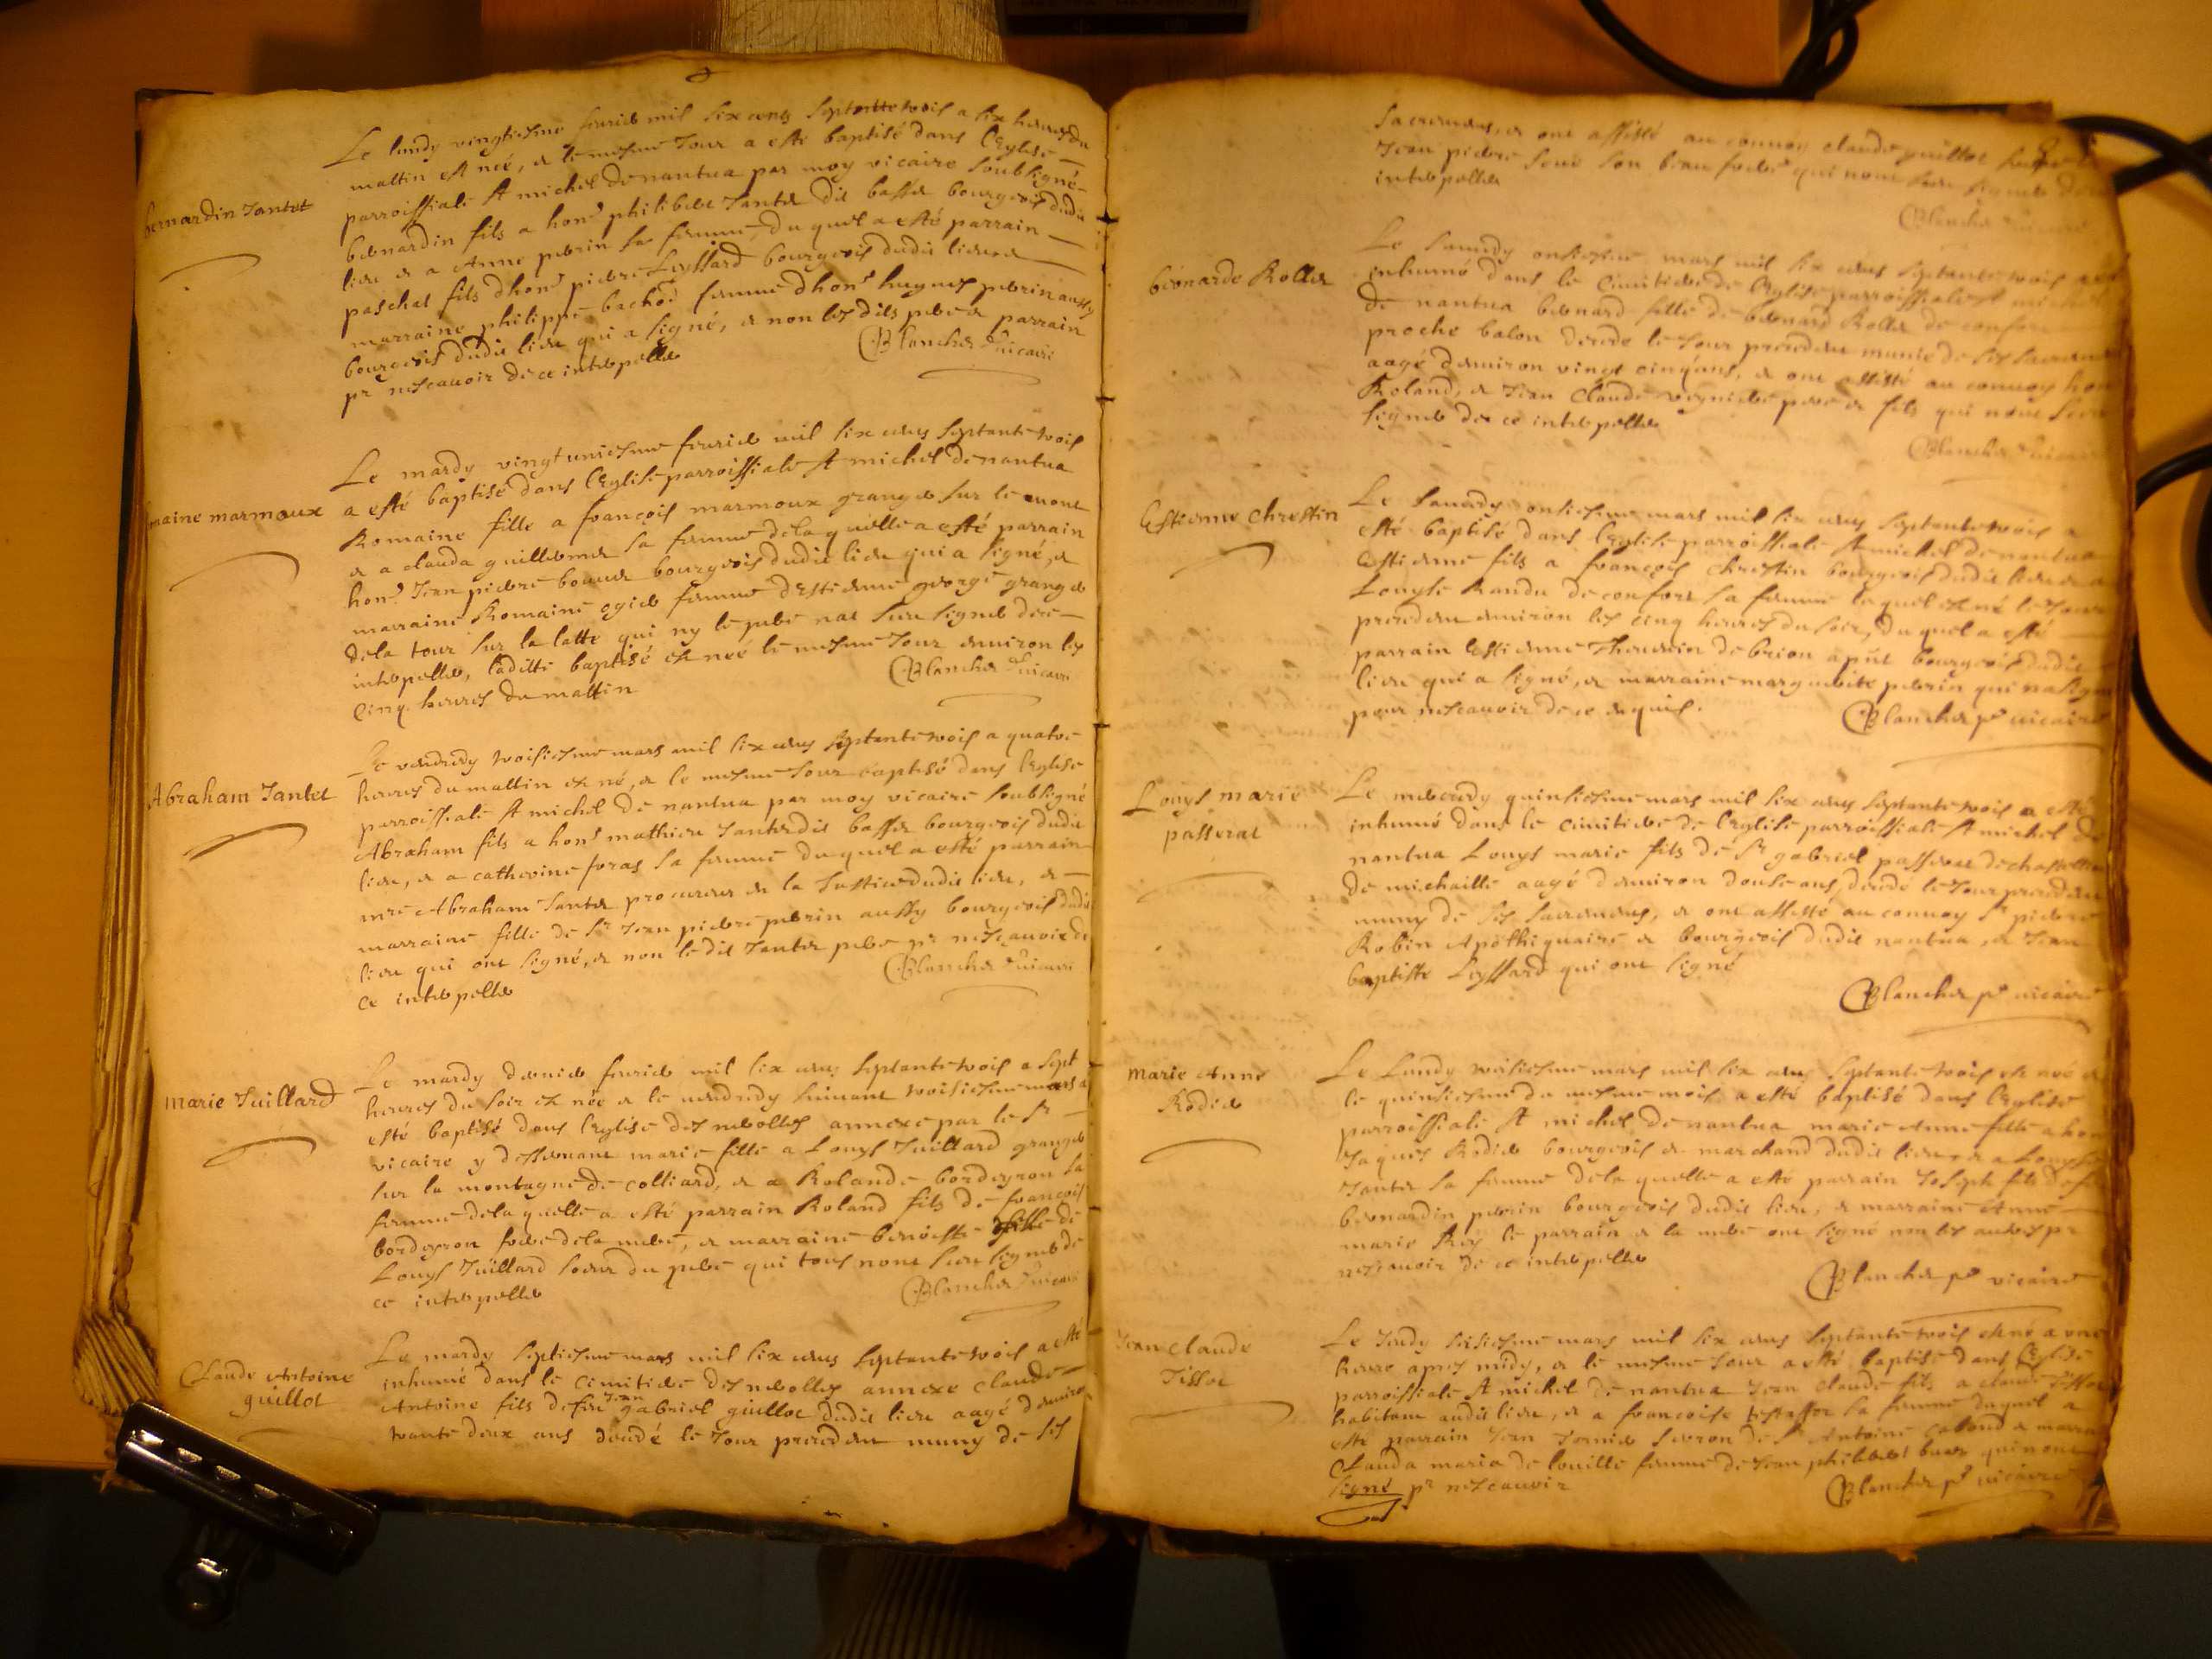 bernardin Jantet
Le lundy vingtiesme feurier mil six cens septante trois a six heures du
mattin est neé, et le mesme Jour a esté baptisé dans l'Eglise
parroissiale st michel de nantua par moy vicaire soubsigné
bernardin fils a hon.e philibert Jantet dit basset bourgeois dudit
lieu et a Anne perrin sa femme, duquel a esté parrain
paschal fils d'hon.e pierre Leyssard bourgeois dudit lieu et
marraine philippe bachod femme d'hon.e hugues perrin aussy
bourgeois dudit lieu qui a signé, et non lesdits pere et parrain
pr nescauoir de ce interpellés
Blanchet vicaire
maine marmoux
Le mardy vingtuniesme feurier mil six cens septante trois
a esté baptisé dans l'Eglise parroissiale st michel de nantua
Romaine fille a françois marmoux granger sur le mont
et a clauda guillermet sa femme de laquelle a esté parrain
hon.e Jean pierre bouuet bourgeois dudit lieu qui a signé, et
marraine Romaine ogier femme d'Estienne george granger
de la tour sur la latte qui ny le pere nat sceu signer de ce
interpellés, laditte baptisé est neé le mesme Jour enuiron les
cinq heures du mattin
Blanchet vicaire
Abraham Jantet
Le vendredy troisiesme mars mil six cens septante trois a quatre
heures du mattin est né, et le mesme Jour baptisé dans l'Eglise
parroissiale st michel de nantua par moy vicaire soubsigné
Abraham fils a hon.e mathieu Jantet dit basset bourgeois dudit
lieu, et a catherine foras sa femme duquel a esté parrain
mre Abraham Jantet procureur en la Justice dudit lieu, et
marraine fille de sr Jean pierre perrin aussy bourgeois dudit
lieu qui ont signé, et non ledit Jantet pere pr nescauoir de
ce interpellés
Blanchet vicaire
marie Juillard
Le mardy dernier feurier mil six cens septante trois a sept
heures du soir est neé et le vendredy suiuant troisiesme mars a
esté baptisé dans l'Eglise des nerolles annexe par le sr
vicaire y desseruant marie fille a Louys Juillard granger
sur la montagne de colliard, et a Rolande bordeyron sa
femme de laquelle a esté parrain Roland fils de françois
bordeyron frere de la mere, et marraine benoiste fille de
Louys Juillard soeur du pere qui tous nont sceu signer de
ce interpellés
Blanchet vicaire
Claude Antoine
guillot
Le mardy septiesme mars mil six cens septante trois a esté
inhumé dans le cimitiere des nerolles annexe claude
Antoine fils de feu Jean gabriel guillot dudit lieu aagé d'enuiron
trante deux ans decedé le Jour precedent muny de ses
sacremens, et ont assisté au conuoy claude guillot
Jean pierre son beau frere qui nont sceu signer de ce
interpellés
Blanchet vicaire
bernarde Rollet
Le samedy onsiesme mars mil six cens septante trois a esté
inhumé dans le cimitiere de l'Eglise parroissiale st michel
de nantua bernard fille de bernard Rollet de confort
proche balon decede le Jour precedent munie de ses sacremens
aagé d'enuiron vingt cinq ans, et ont assisté au conuoy hon
Roland, et Jean Claude pere et fils qui nont sceu
signer de ce interpellés
Blanchet vicaire
Estienne chrestin
Le samedy onsiesme mars mil six cens septante trois a
esté baptisé dans l'Eglise parroissiale st michel de nantua
Estienne fils a françois chrestin bourgeois dudit lieu et a
Louyse Randu de confort sa femme lequel est né le Jour
precedent enuiron les cinq heures du soir, duquel a esté
parrain Estienne Theuenin de brion bourgeois dudit
lieu qui a signé, et marraine marguerite perrin qui na signé
pour nescauoir de ce enquis.
Blanchet pr vicaire
Louys marie
passerat
Le mercredy quinsiesme mars mil six cens septante trois a esté
inhumé dans le cimitiere de l'Eglise parroissiale st michel de
nantua Louys marie fils de sr gabriel passerat de chastillon
de michaille aagé d'enuiron douse ans, decedé le Jour precedent
muny de ses sacremens, et ont assisté au conuoy sr pierre
Robin Apothiquaire et bourgeois dudit nantua, et Jean
baptiste Leyssard qui ont signé
Blanchet pr vicaire
marie Anne
Rodier
Le Lundy troisiesme mars mil six cens septante trois est neé et
le quinsiesme du mesme mois a esté baptisé dans l'Eglise
parroissiale st michel de nantua marie Anne fille a hon
Jaques Rodier bourgeois et marchand dudit lieu et a Louyse
Jantet sa femme de laquelle a esté parrain Joseph fils de feu
bernardin perrin bourgeois dudit lieu, et marraine Anne
marie Rey le parrain et la mere ont signé non les autres pr
nescauoir de ce interpellés
Blanchet pr vicaire
Jean claude
Tissot
Le Jeudy seisiesme mars mil six cens septante trois est né a une
heure apres midy, et le mesme Jour a esté baptisé dans l'Eglise
parroissiale st michel de nantua Jean claude fils a claude Tissot
habitant audit lieu, et a francoise sa femme duquel a
esté parrain Jean de sr Antoine et marraine
Clauda maria de louille femme de Jean philibert qui nont
signé pr nescauoir
Blanchet pr vicaire